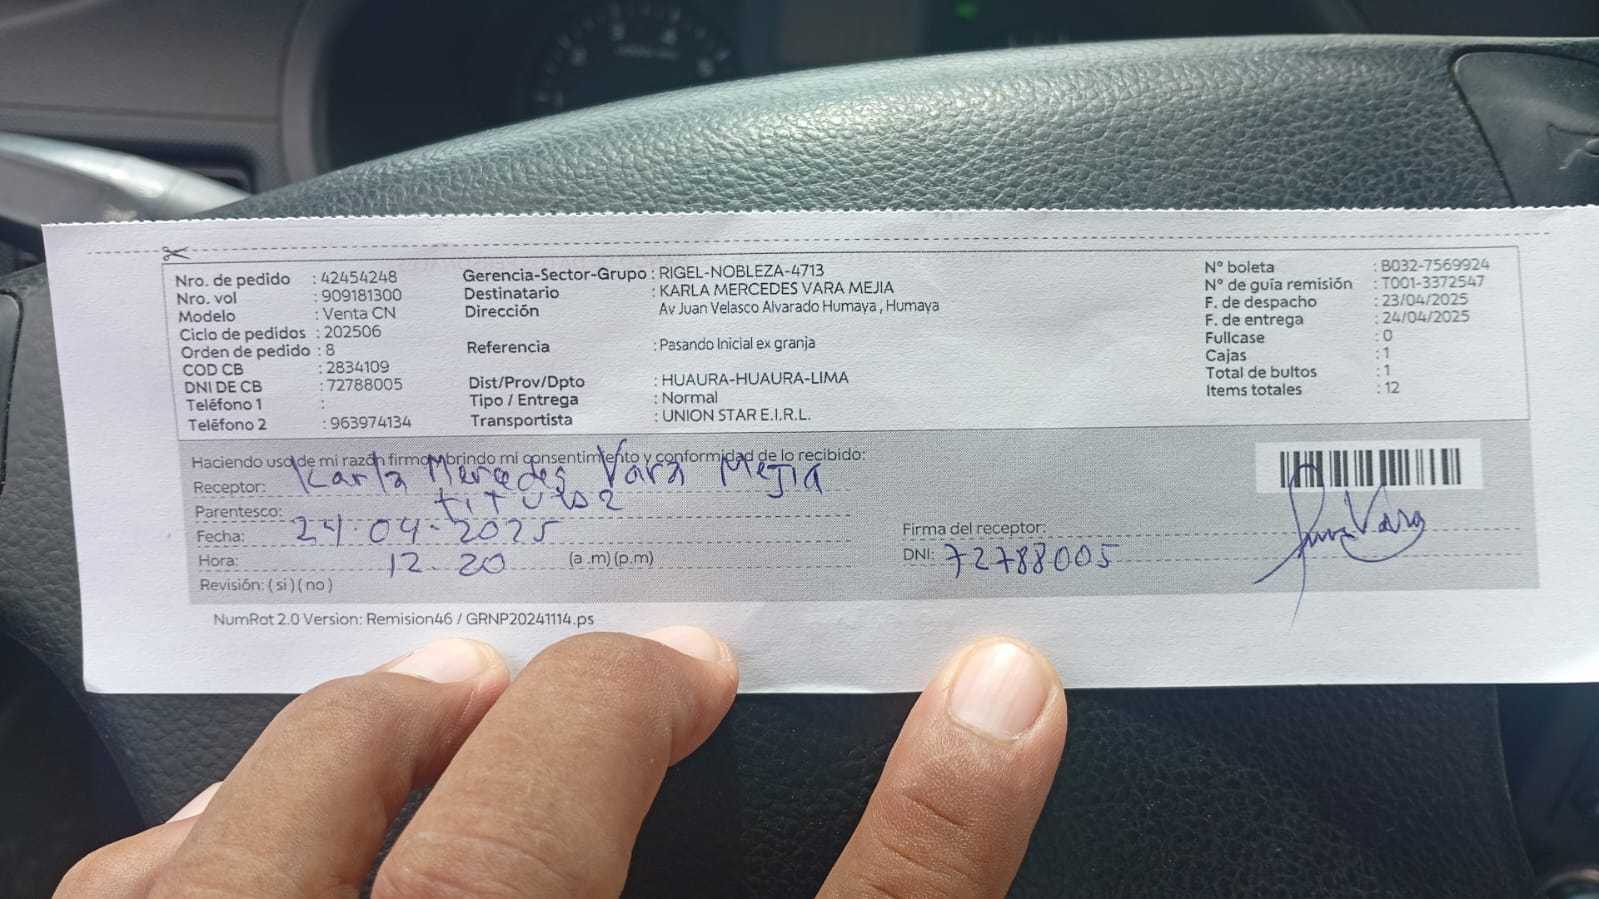 Nro. de pedido : 42454248
Nro. vol : 909181300
Modelo : Venta CN
Ciclo de pedidos : 202506
Orden de pedido : 8
COD CB : 2834109
DNI DE CB : 72788005
Teléfono 1 :
Teléfono 2 : 963974134
Gerencia-Sector-Grupo : RIGEL-NOBLEZA-4713
Destinatario : KARLA MERCEDES VARA MEJIA
Dirección Av Juan Velasco Alvarado Humaya , Humaya
Referencia : Pasando Inicial ex granja
Dist/Prov/Dpto : HUAURA-HUAURA-LIMA
Tipo / Entrega : Normal
Transportista : UNION STAR E.I.R.L.
N° boleta : B032-7569924
N° de guía remisión : T001-3372547
F. de despacho : 23/04/2025
F. de entrega : 24/04/2025
Fullcase : 0
Cajas : 1
Total de bultos : 1
Items totales : 12
Haciendo uso de mi razón firmo brindo mi consentimiento y conformidad de lo recibido:
Receptor: Karla Mercedes Vara Mejia
Parentesco:
Fecha: 24.04.2025
Hora: 12.20 (a .m) (p.m)
Revisión: ( si ) ( no )
Firma del receptor: Vara
DNI: 72788005
NumRot 2.0 Version: Remision46 / GRNP20241114.ps